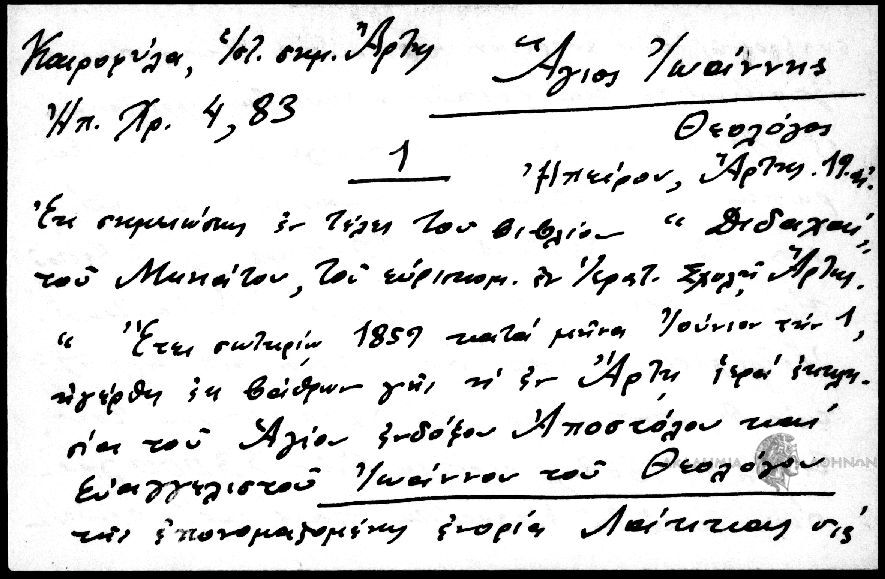 Καιροφύλα, ἱστ. σημ. Ἄρτης
Ἅγιος Ἰωάννης
Ἠπ. Χρ. 4, 83
Θεολόγος
1
Ἠπείρου, Ἄρτης. 19. αἰ.
Ἐκ σημειώσεως ἐν τέλει τοῦ βιβλίου “ Διδαχαί„
τοῦ Μηνιάτου, τοῦ εὑρισκομ. ἐν Ἱερατ. Σχολῇ Ἄρτης.
“ Ἔτει σωτηρίῳ 1857 κατά μῆνα Ἰούνιον τήν 1,
ἠγέρθη ἐκ βάθρων γῆς ἡ ἐν Ἄρτῃ ἱερά ἐκκλη-
σία τοῦ Ἁγίου ἐνδόξου Ἀποστόλου καί
Εὐαγγελιστοῦ Ἰωάννου τοῦ Θεολόγου
τῆς ἐπονομαζομένης ἐνορία
ΑΚΑΔΗΜΙΑ ΑΘΗΝΩΝ